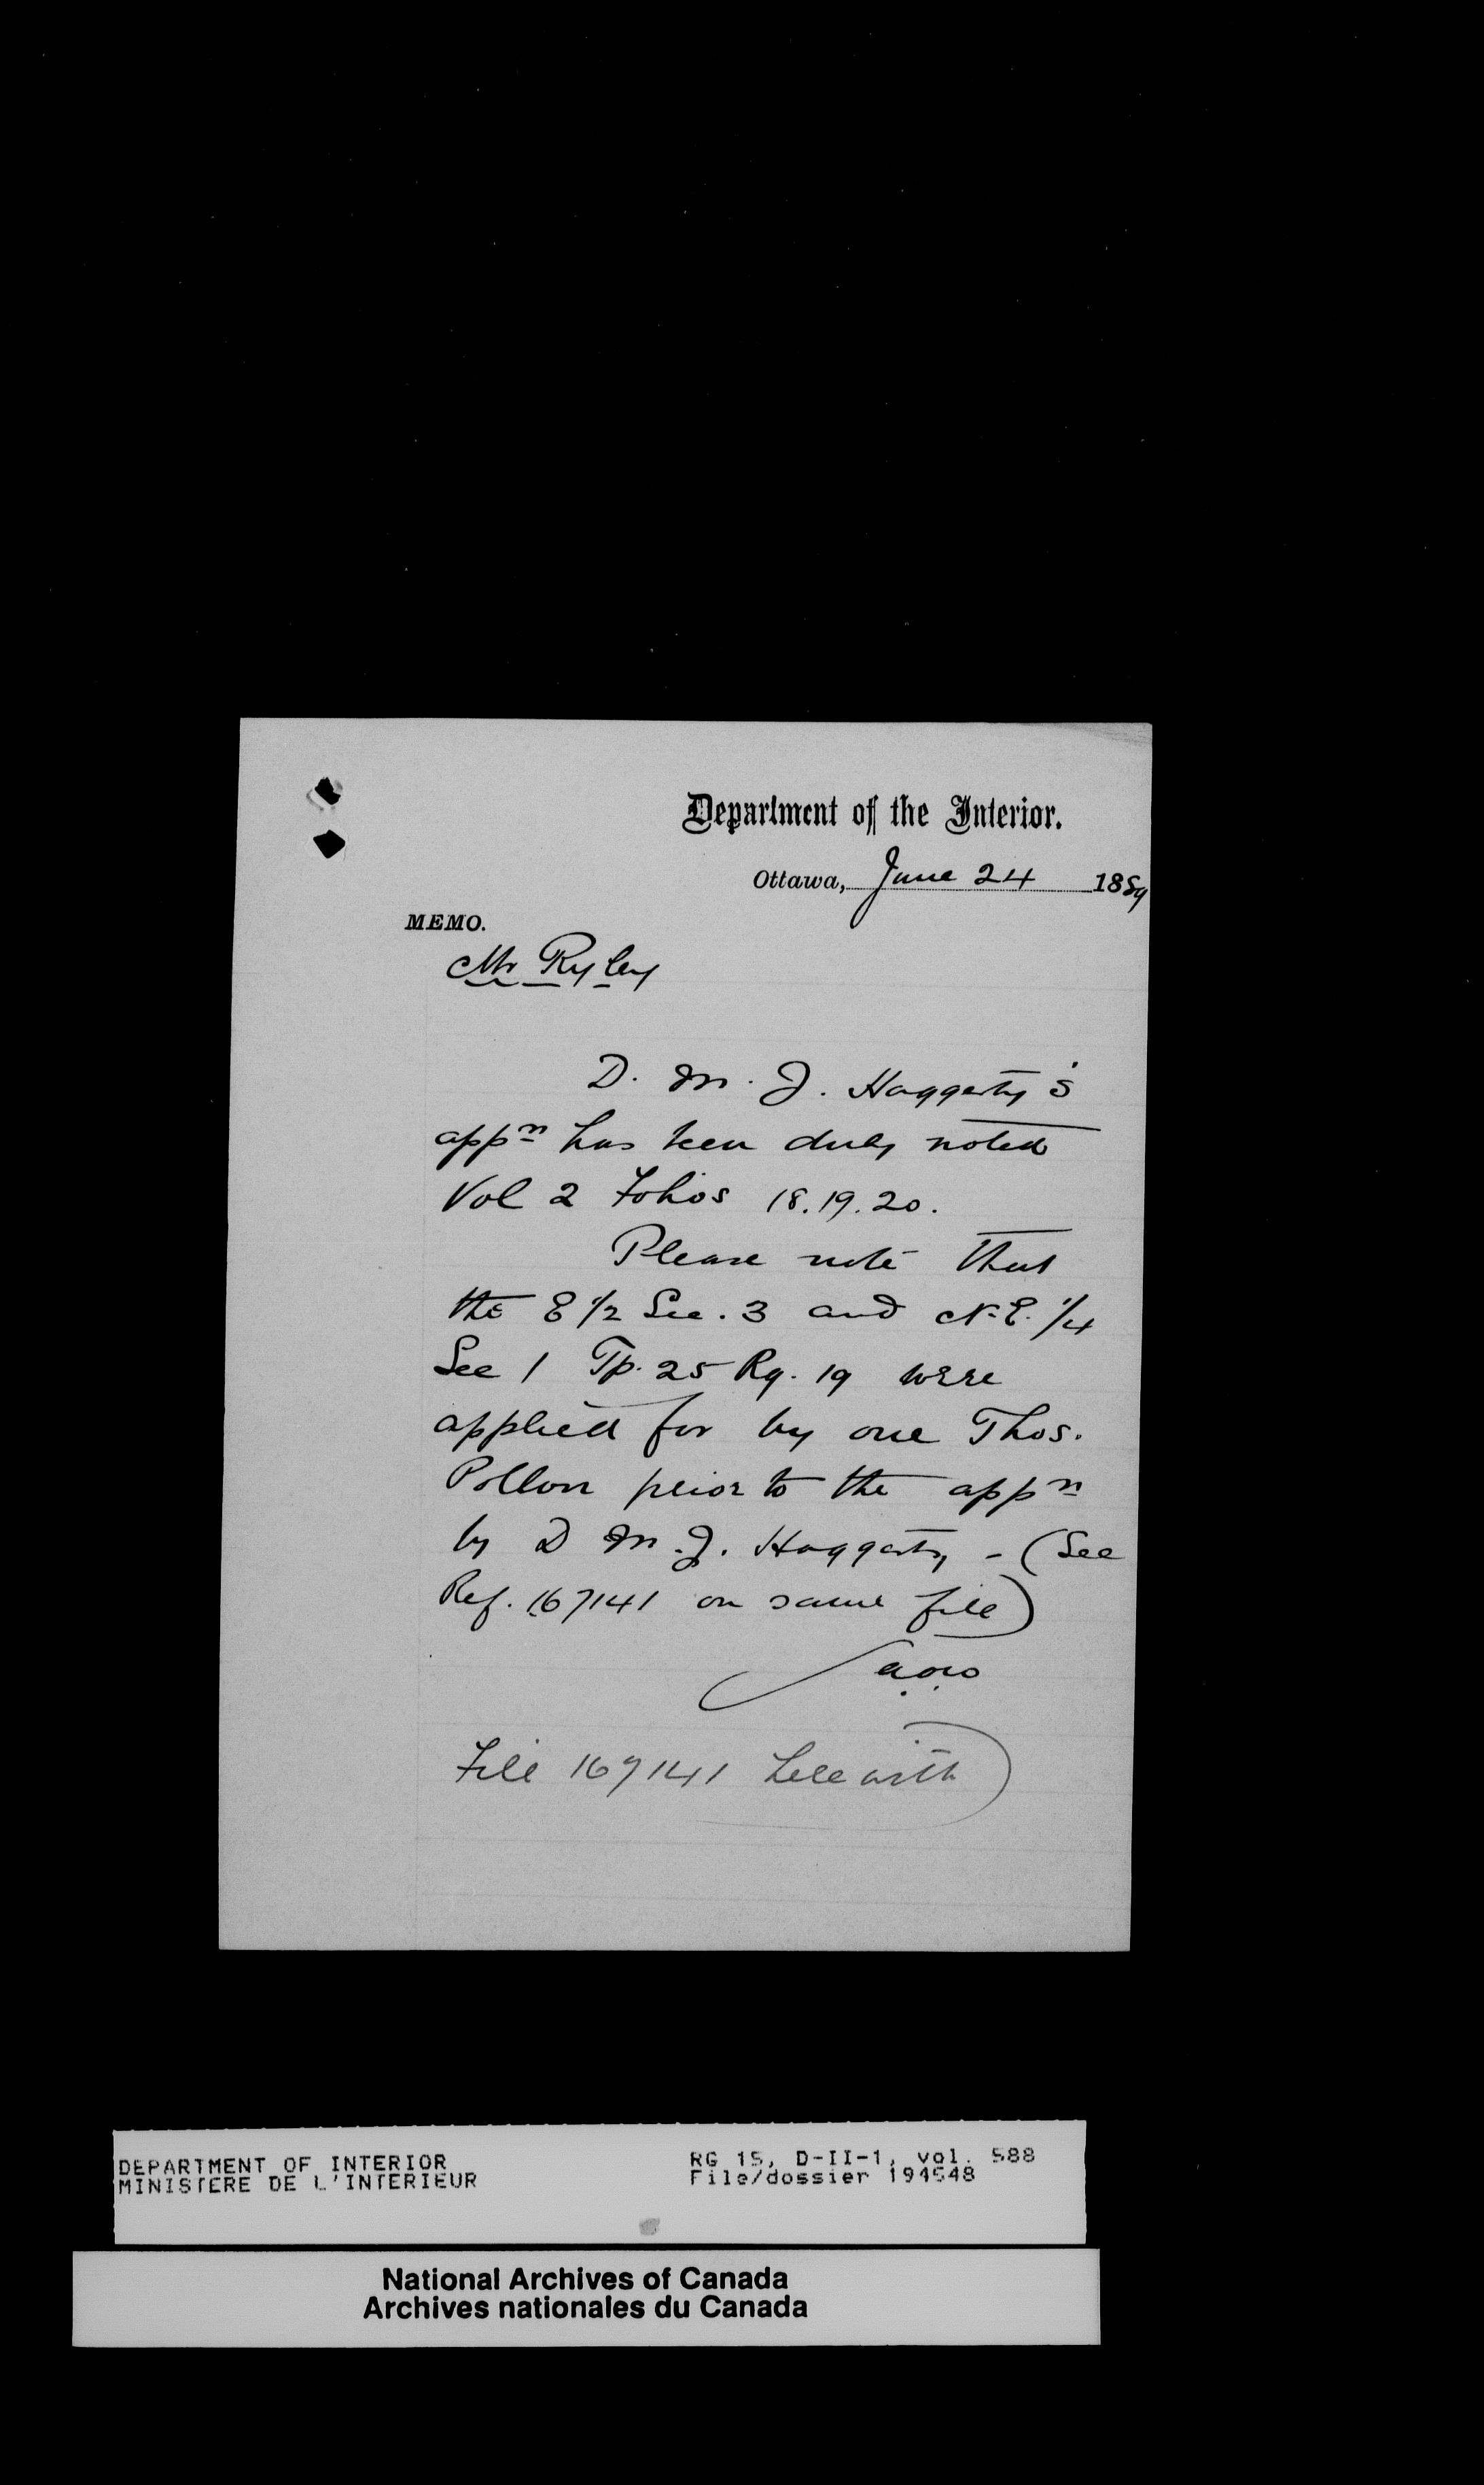 Department of the Interior.
Ottawa, June 24 1889
MEMO.
Mr Ryley
D. M. J. Haggerty's
appn has been duly noted
Vol 2 Folios 18.19.20.
Please note that
the E 1/2 Sec. 3 and N.E. 1/4
Sec 1 Tp. 25 Rg. 19 were
applied for by one Thos.
Pollon prior to the appn
by D M.J. Haggerty - (See
Ref. 167141 on same file)
File 167141 herewith)
DEPARTMENT OF INTERIOR
MINISTERE DE L'INTERIEUR
RG 15, D-II-1, vol. 588
File/dossier 194548
National Archives of Canada
Archives nationales du Canada